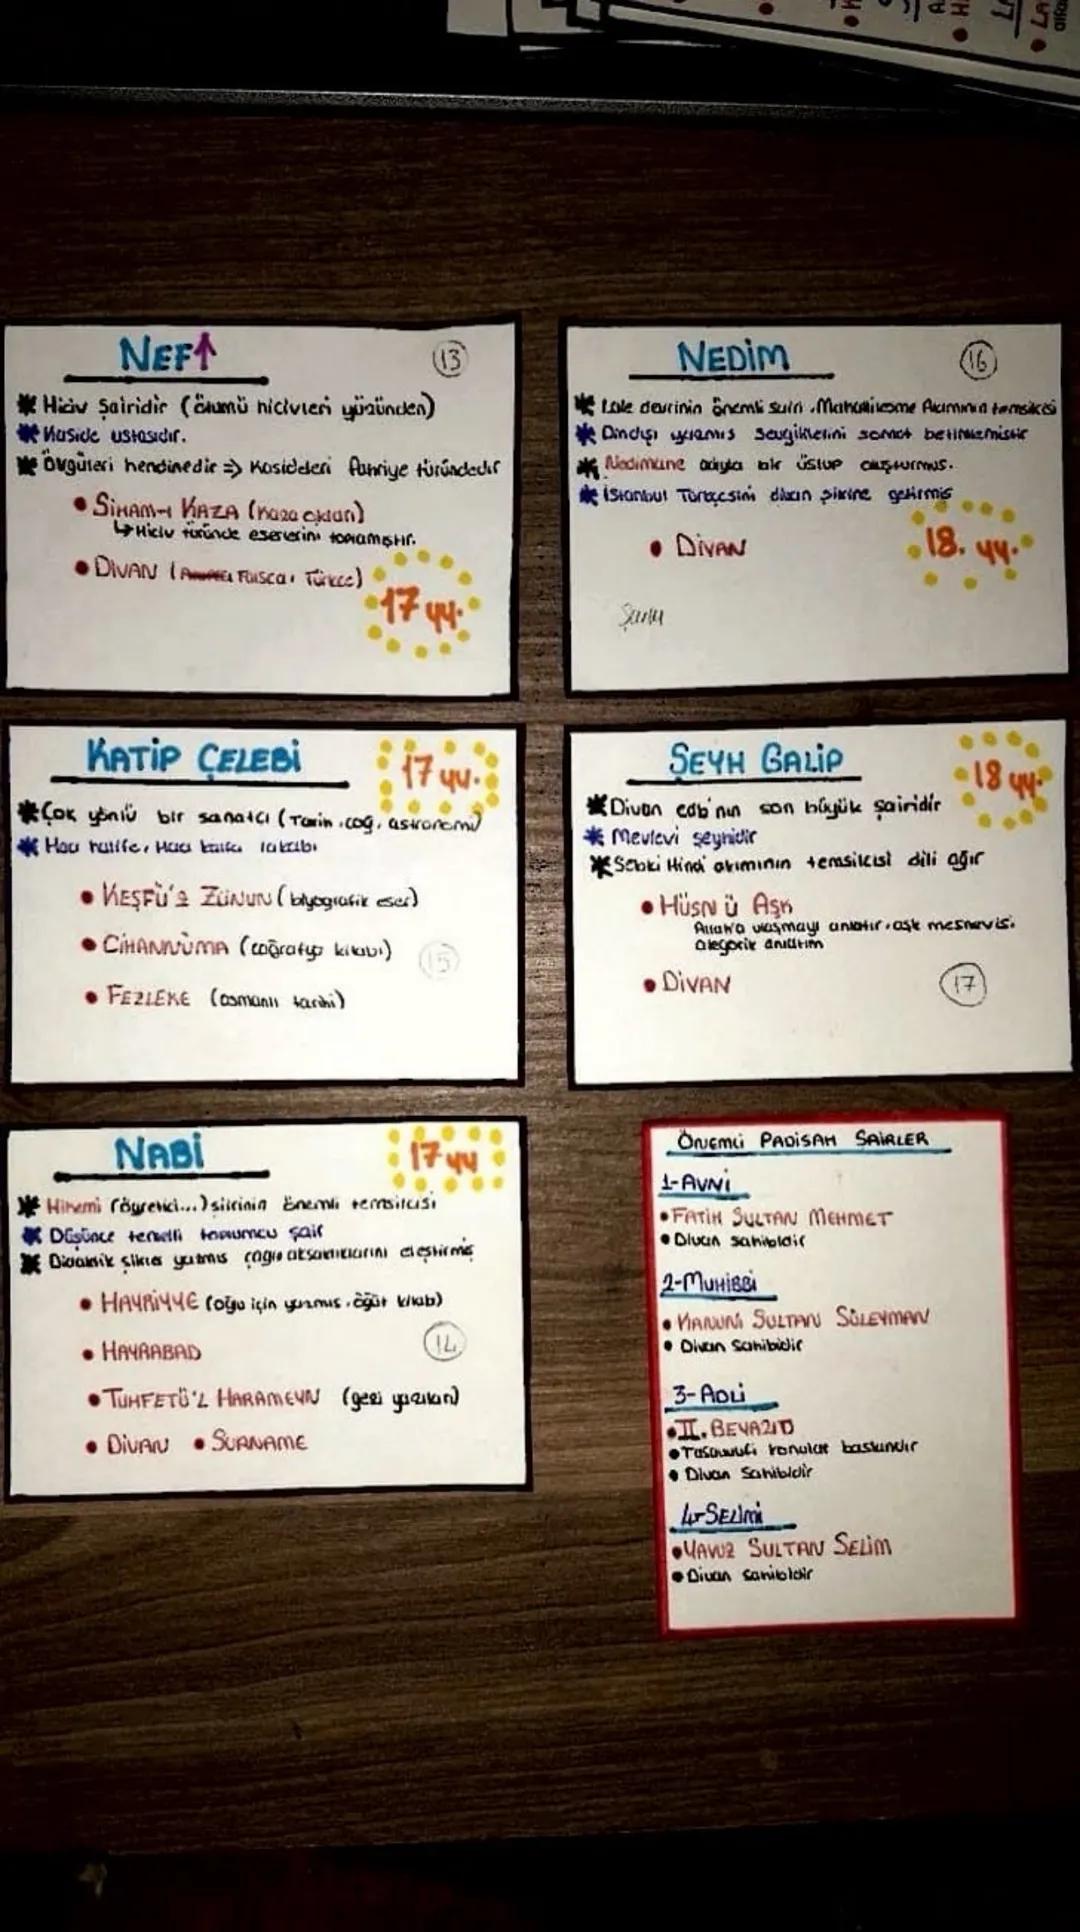 NEFİ
13
Hiciv Şairidir (ölümü hicivleri yüzünden)
Kaside ustasıdır.
Övgüleri kendinedir => Kasideleri fahriye türündedir
SİHAM-I KAZA (Kaza okları)
Hiciv türünde eserlerini toplamıştır.
DİVAN (Farsça, Türkçe)
17 yy.
NEDİM
16
Lale devrinin önemli şairi. Mahallileşme Akımının temsilcisi
Dindışı yazmış sevgililerini somut betimlemiştir
Nedimane adıyla bir üslup oluşturmuş.
İstanbul Türkçesini divan şiirine getirmiş
DİVAN
18. yy.
Şarkı
KATİP ÇELEBİ
17 yy.
Çok yönlü bir sanatçı (Tarih, coğ, astronomi)
Hacı halife, Hacı kalfa lakabı
KEŞFÜ'Z ZÜNUN (biyografik eser)
CİHANNÜMA (coğrafya kitabı)
15
FEZLEKE (osmanlı tarihi)
ŞEYH GALİP
18 yy.
Divan edb'nın son büyük şairidir
Mevlevi şeyhidir
Sebki Hindi akımının temsilcisi dili ağır
HÜSN Ü AŞK
Allah'a ulaşmayı anlatır, aşk mesnevisi.
alegorik anlatım
DİVAN
17
NABİ
17 yy
Hikemi (öğretici...) şiirinin önemli temsilcisi
Düşünce temelli toplumcu şair
Didaktik şiirler yazmış çağın aksaklıklarını eleştirmiş
HAYRİYYE (oğlu için yazmış, öğüt kitabı)
14
HAYRABAD
TUHFETÜ'L HARAMEYN (gezi yazıları)
DİVAN SURNAME
ÖNEMLİ PADİŞAH ŞAİRLER
1-AVNİ
FATİH SULTAN MEHMET
Divan sahibidir
2-MUHİBBİ
KANUNİ SULTAN SÜLEYMAN
Divan Sahibidir
3-ADLİ
II. BEYAZID
Tasavvufi konular baskındır
Divan Sahibidir
4-SELİMİ
YAVUZ SULTAN SELİM
Divan sahibidir